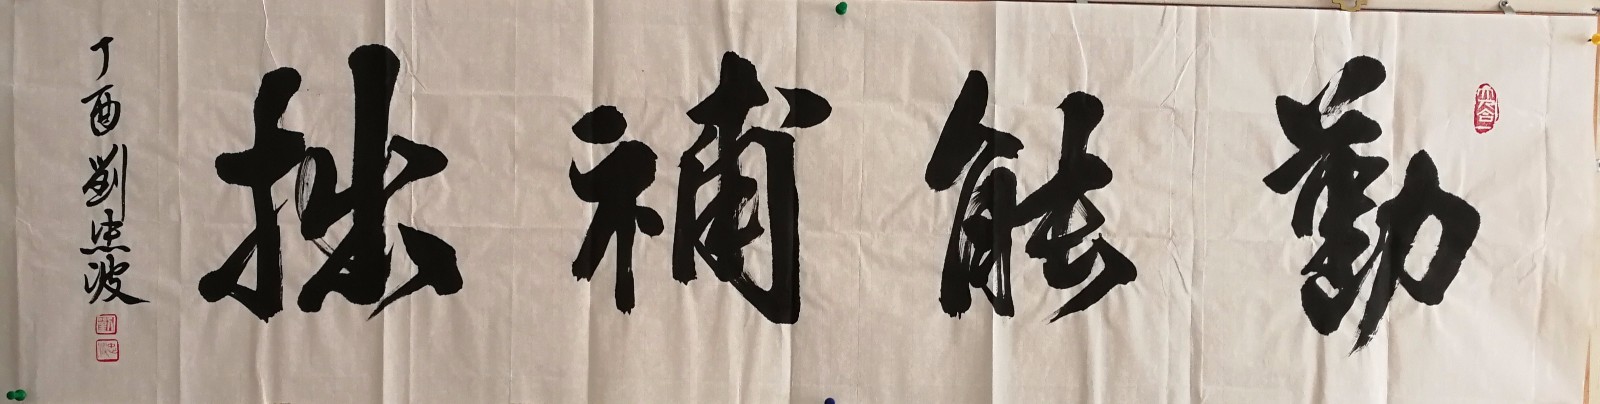 勤能補拙
丁酉劉忠波